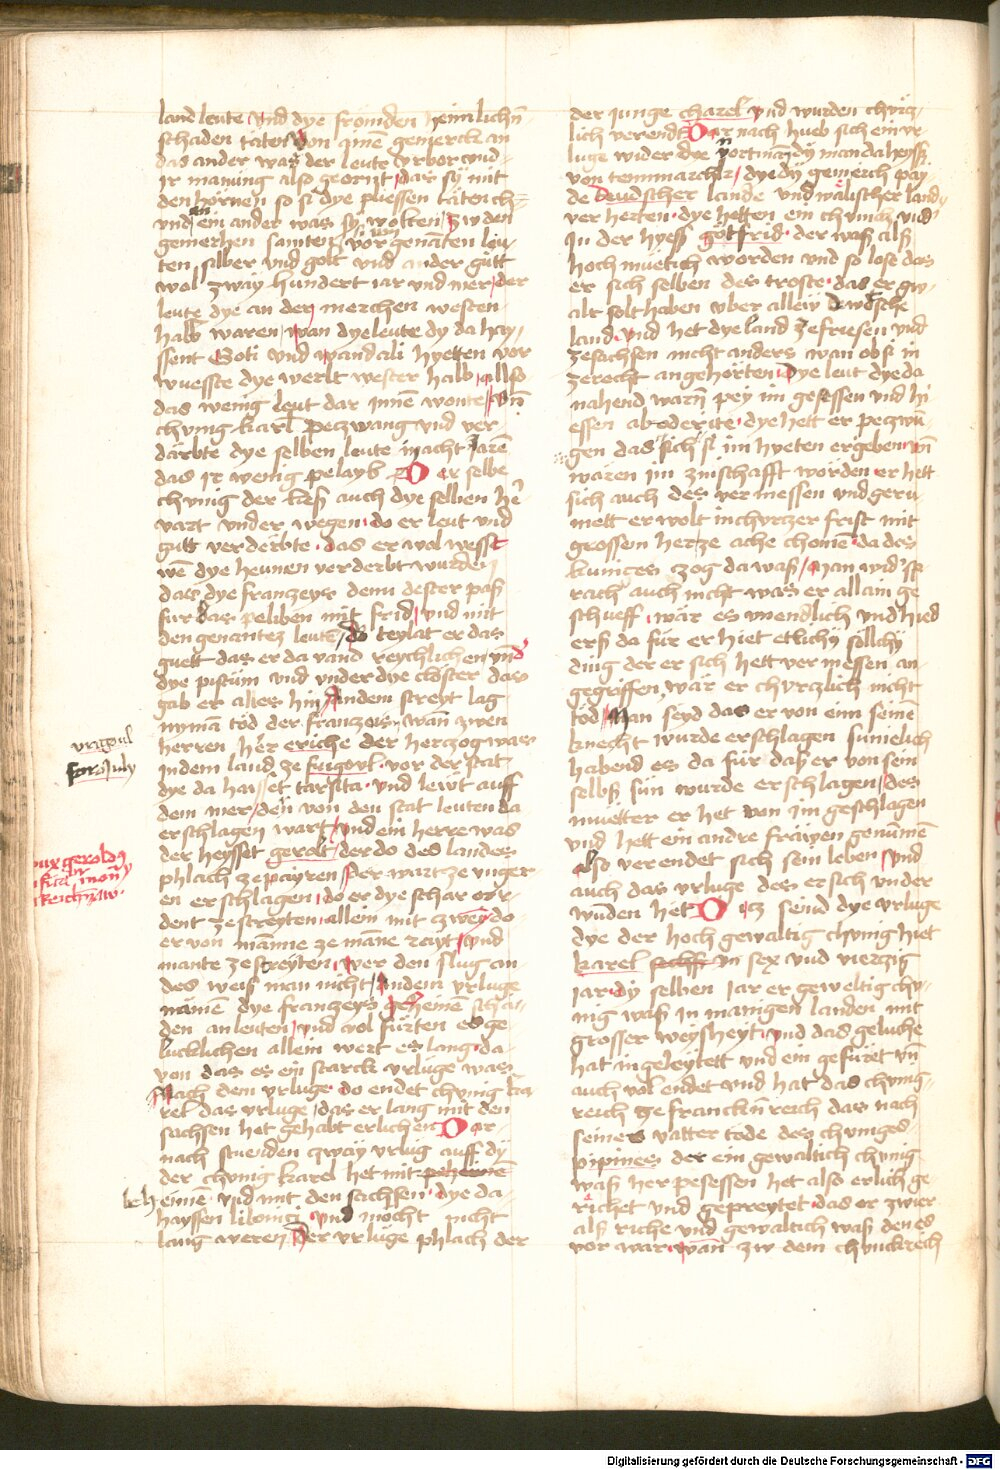 land leute vnd dye frömden heimlichñ
schaden täten von ainē gemerck an
das ander was der leute vrbor vnd
ir manung also georizt das sÿ mit
den hornen so si dye pliessen täten ch
vnd an ein ander was sÿ wolten zw den
gemerhen samten vor genāten leu
ten silber vnd golt vnd ander gůtt
wol zway hundert iar vnd mer der
leute dye an der merchen westen
halb waren wan dye leute dy da hay
ssent Goti vnd wandali hyetten vor
wuesste dye werlt wester halb allso
das wenig leut dar Innē wonte vñ
chvnig karl peczwang vnd ver
därbte dye selben leute macht Jarē
das ir wenig pelayb Der selbe
chvnig der ließ auch dye selben he
vart vnder wegen do er leut vnd
gutt verderbte das er wol wesst
wē dye heunen verderbt wurden
daz dye franzeys denn dester paß
fur das peliben mit frid vnd mit
den genantez leute do teylat er das
guett das er da vand reychlichen vnd
dye pistům vnd vnder dye clöster das
gab er alles hin Indem streyt lag
nymā töd der franzois wan zwen
herren her eriche der herczog was
Indem land ze feigorl vor der stat
dye da haisset tarsita vnd lewt auff
dem mer den von den stat leuten da
erschlagen wart vnd ein herre was
der heysset gerolt der do des landes
phlach ze payren Der wart ze vnger
en erschlagen do er dye schar orr
dent ze streyten allein mit zweÿ do
er von manne ze māne rayt vnd
mante ze streyten wer den slug an
des weiß man nicht Indem vrluge
nämen dye franzeys geheinē scha
den an leuten vnd wol fürten es ge
lucklichen allein wert es lang da
von das es ein starck vrluge was
Nach dem vrluge do endet chvnig ka
rel das vrluge das er lang mit den
sachsen het gehabt erlichen Dar
nach stuenden zwaÿ vrlug auff dÿ
der chvnig karel het mit pehemē
beheime vnd mit den sachsen dye da
hayssen libonici vnd mocht nicht
lang weren Der vrluge phlach der
vragoul
foroJuly
dux geroldus
Reichnaw
der junge charel vnd wurden chürcz
lich verendt Dar nach hueb sich ein vr
luge wider dye nortmād dÿ man da heysß
von temmarchr dye dÿ gemerch pay
de deudscher lande vnd wälischer land
ver herten dye hetten ein chunich vnd
In der hyess götfrid der waß alß
hoch müetich worden vnd so lose das
er sich selben des troste das er gw
alt solt haben vber alleiv Dewtsche
land vnd het dye land ze friesen vnd
ze sachsen nicht anders wan ob si in
ze recht angehörten Dye leut dye da
nahend warñ pey im gesessen vnd hi
essen abederite dye hett er peczwū
gen das sich si im hyeten ergeben vñ
waren im zinschafft worden er hett
sich auch des vermessen vnd geru
mett er wolt in churczer frist mit
grossem herze ache chomē da des
kuniges zog da waß Man wid sp
rach auch nicht was er allain ge
schueff wär es vnendlich vnd hied
erß da für er hiet etlichÿ söllchÿ
ding der er sich hett vermessen an
gegriffen wär er chvrczlich nicht
töd Man seyd das er von eim seinē
knecht wurde erschlagen sumelich
habend es da für daß er von sein
selbß sün wurde erschlagen des
müetter er het von im geschlagen
vnd hett ein andre fräwen genūmē
Also verendet sich sein leben vnd
auch das vrluge des er sich vnder
wūden het Dicz seind dye vrluge
dye der hoch gewaltig chvnig hiet
karel in sex vnd vierzig
jar dÿ selben Jar er geweltig chv
nig waß in manigen landen mit
grosser weysheyt vnd das geluche
hat in geleytett vnd ein gefüret vñ
auch vol endet vnd hat das chvnig
reich ze franckñ reich das nach
seines vatter tode des chvniges
pipines der ein gewaltich chvnig
waß her pesessen het also erlich ge
richet vnd gepreytet das er zwir
alß riche vnd gewaltich waß den es
vor war wan zw dem chvnickreich
Digitalisierung gefördert durch die Deutsche Forschungsgemeinschaft - DFG